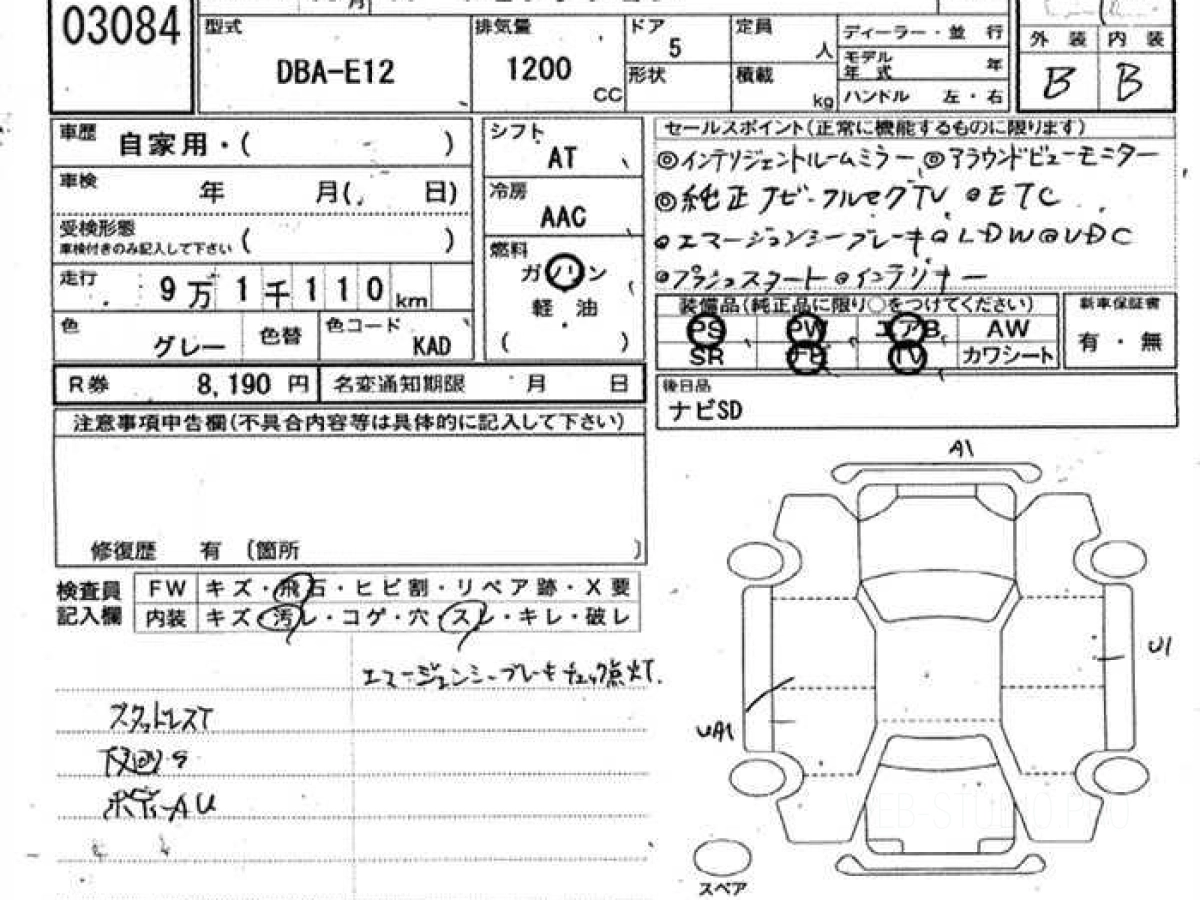 03084
月
型式 DBA-E12
排気量 1200 CC
ドア 5
形状
定員 人
積載 kg
ディーラー・並 行
モデル年 式 年
ハンドル 左・右
外 装 内 装
B B
車歴 自家用・( )
車検 年 月( 日)
受検形態
車検付きのみ記入して下さい ( )
走行 9万1千110km
色 グレー 色替 色コード KAD
シフト AT
冷房 AAC
燃料
ガソリン
軽 油
( )
セールスポイント(正常に機能するものに限ります)
◎インテリジェントルームミラー ◎アラウンドビューモニター
◎純正ナビ・フルセグTV ◎ETC
◎エマージェンシーブレーキ◎LDW◎VDC
◎プッシュスタート ◎インテリキー
装備品(純正品に限り○をつけてください)
PS PW エアB AW
SR ナビ TV カワシート
新車保証書
有・無
R券 8,190 円 名変通知期限 月 日
後日品
ナビSD
注意事項申告欄(不具合内容等は具体的に記入して下さい)
修復歴 有 〔箇所 〕
検査員
記入欄
FW キズ・飛石・ヒビ割・リペア跡・X要
内装 キズ・汚レ・コゲ・穴・スレ・キレ・破レ
エマージェンシーブレーキチェック点灯
スタッドレスT
下回りS
ボディーAU
A1
U1
UA1
スペア
WEB-STUDIO.PRO